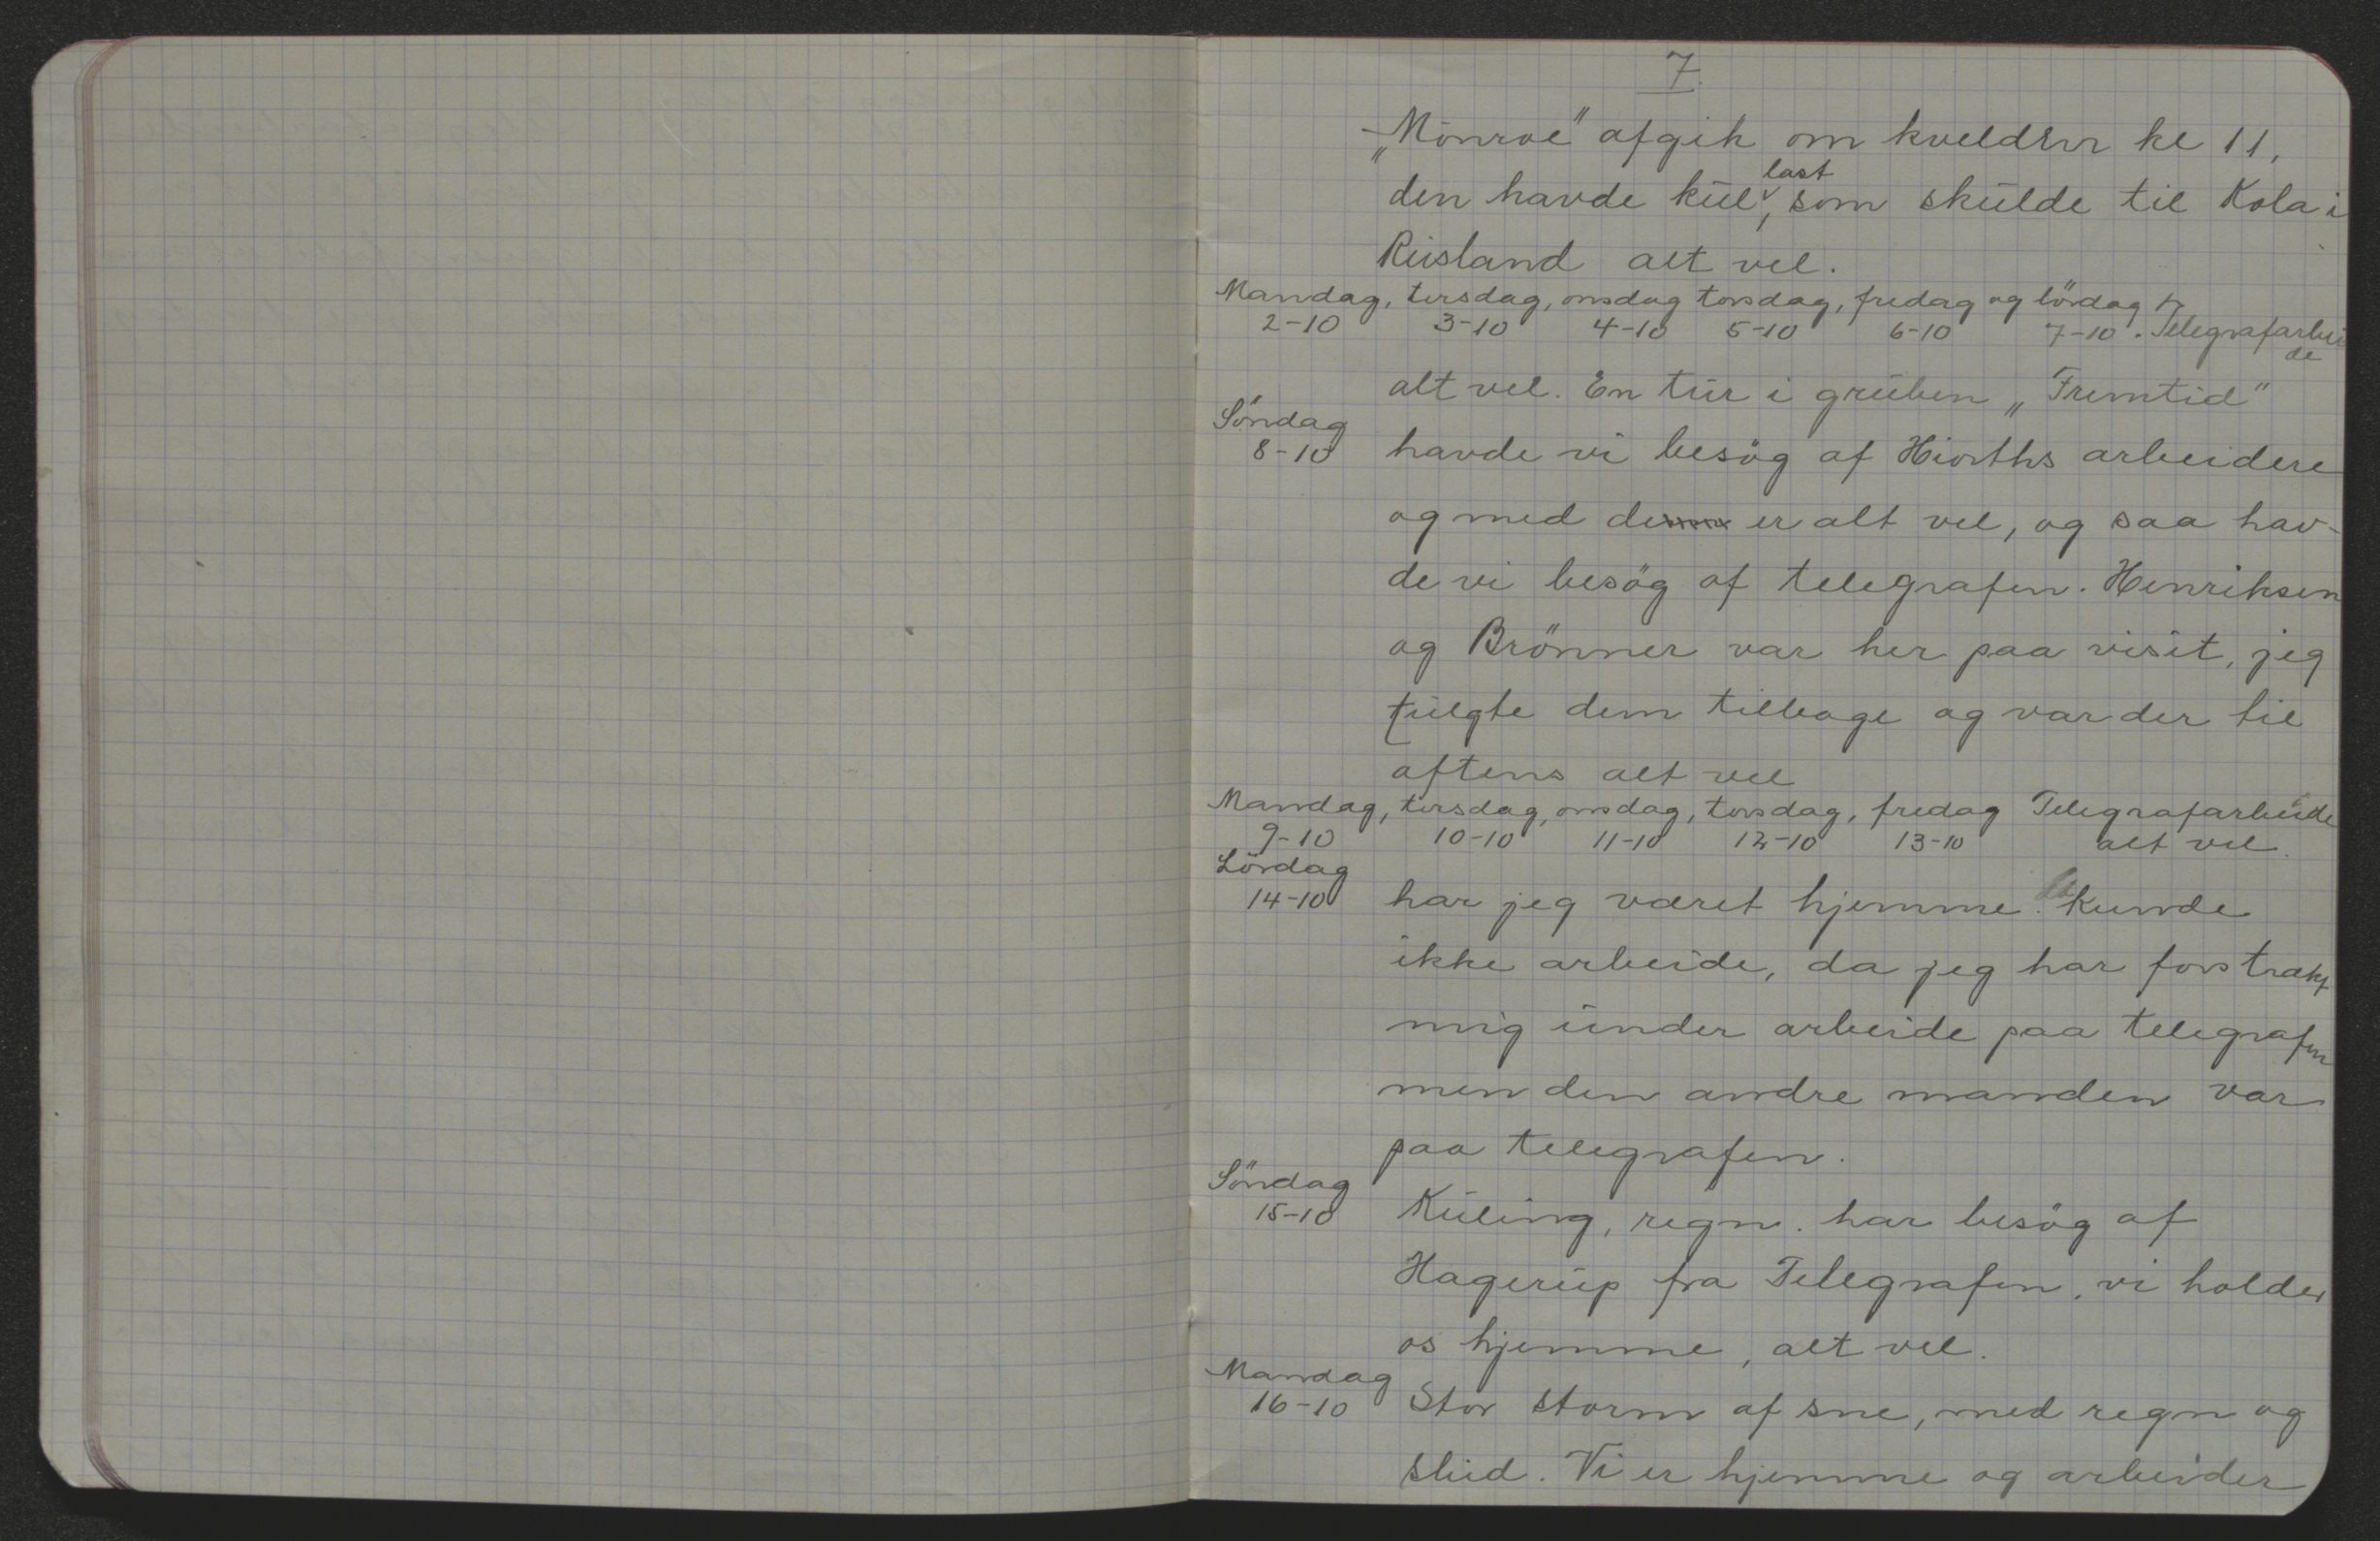 7.
„Monroe" afgik om kvelden kl 11,
den havde kul last, som skulde til Kola i
Rusland alt vel.
Mandag, tirsdag, onsdag torsdag, fredag og lördag
2-10 3-10 4-10 5-10 6-10 7-10. Telegrafarbei
de
alt vel. En tur i gruben „Fremtid"
Söndag
8-10 havde vi besög af Hiorths arbeidere
og med dem er alt vel, og saa hav-
de vi besög af telegrafen. Henriksen
og Brönner var her paa visit, jeg
fulgte dem tilbage og var der til
aftens alt vel
Mandag, tirsdag, onsdag, torsdag, fredag Telegrafarbeide
9-10 10-10 11-10 12-10 13-10 alt vel.
Lördag
14-10 har jeg været hjemme. kunde
ikke arbeide, da jeg har forstrækt
mig under arbeide paa telegrafen
men den andre manden var
paa telegrafen.
Söndag
15-10 Kuling, regn. har besög af
Hagerup fra Telegrafen, vi holder
os hjemme, alt vel.
Mandag
16-10 Stor storm af sne, med regn og
slud. Vi er hjemme og arbeider